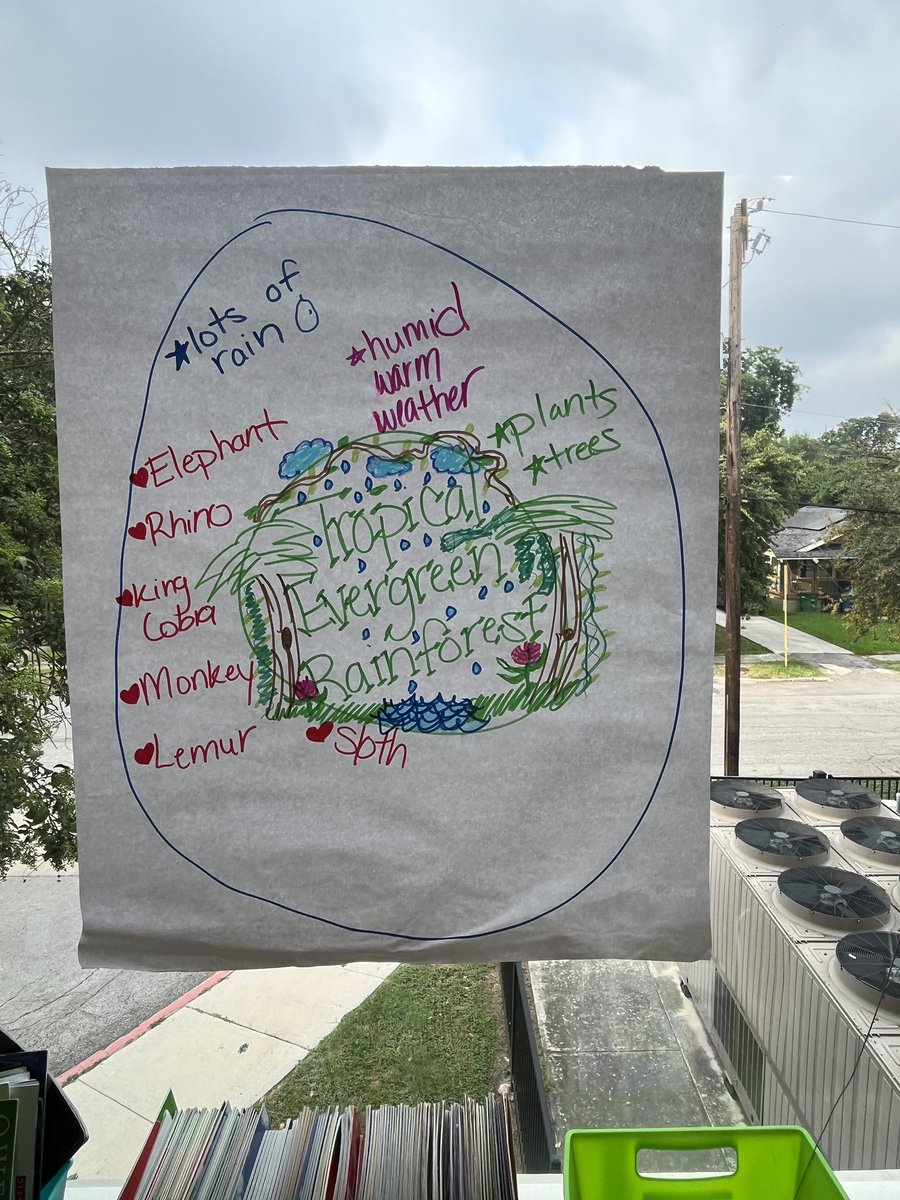 *lots of
rain
*humid
warm
weather
*plants
*trees
Elephant
Rhino
King
Cobra
Monkey
Lemur
Sloth
Tropical
Evergreen
Rainforest